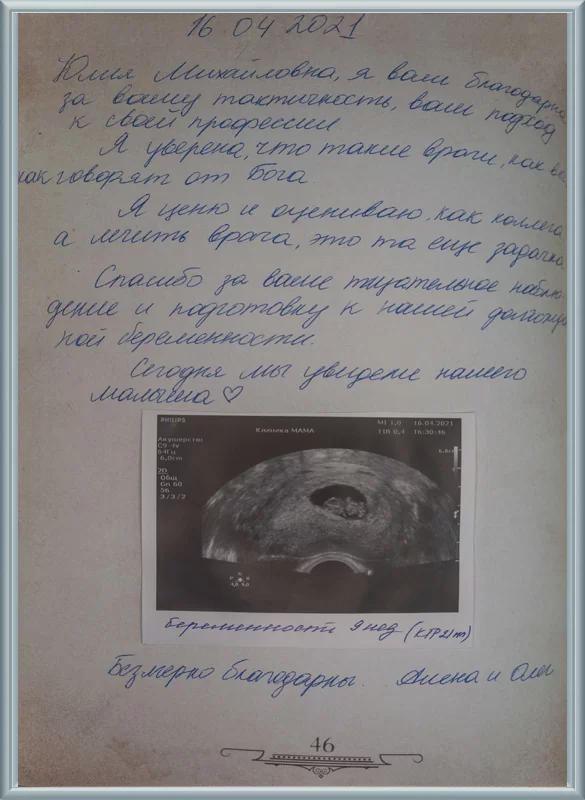 16 04 2021
Юлия Михайловна, я вам благодарна
за вашу тактичность, ваш подход
к своей профессии.
Я уверена, что такие врачи, как вы
как говорят от Бога.
Я ценю и оцениваю, как коллега
а лечить врача, это та еще задачка.
Спасибо за ваше тщательное наблю-
дение и подготовку к нашей долгожда
ной беременности.
Сегодня мы увидели нашего
малыша ♡
PHILIPS
Клиника МАМА
MI 1,0 16.04.2021
TIB 0,4 16:30:46
Акушерство
C9-4v
64Гц
6,0cm
2D
Общ
Gn 60
56
3/3/2
беременности 9 нед (КТР 21 mm)
Безмерно благодарны. Алена и Олег
46